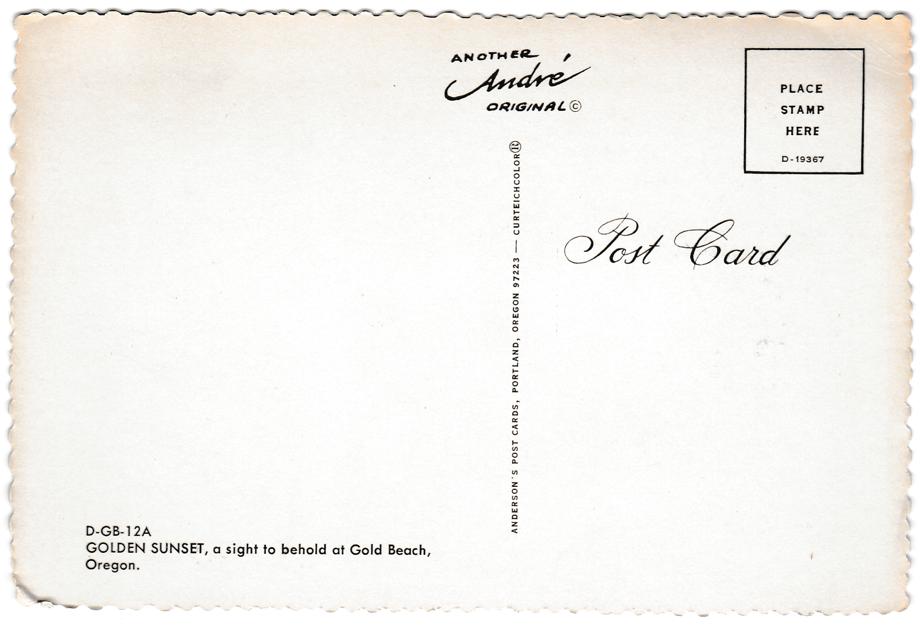 ANOTHER
André
ORIGINAL©
PLACE
STAMP
HERE
D-19367
ANDERSON'S POST CARDS, PORTLAND, OREGON 97223 — CURTEICHCOLOR®
Post Card
D-GB-12A
GOLDEN SUNSET, a sight to behold at Gold Beach,
Oregon.